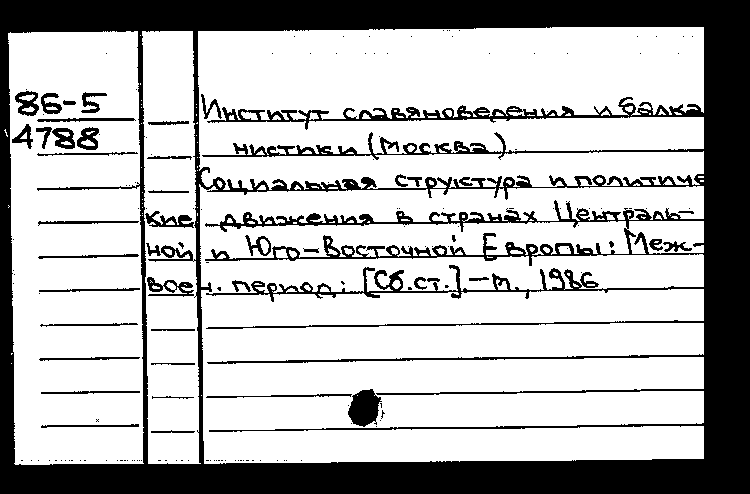 86-5 Институт славяноведения и балка
4788 нистики (Москва).
Социальная структура и политиче
кие движения в странах Централь-
ной и Юго-Восточной Европы: Меж-
воен. период: [Сб.ст.].-М., 1986.